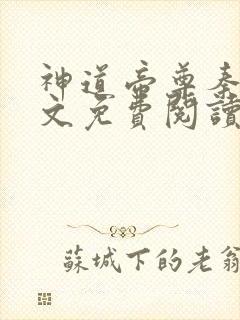 神道帝尊秦
文免費閱讀
蘇城下的老翁